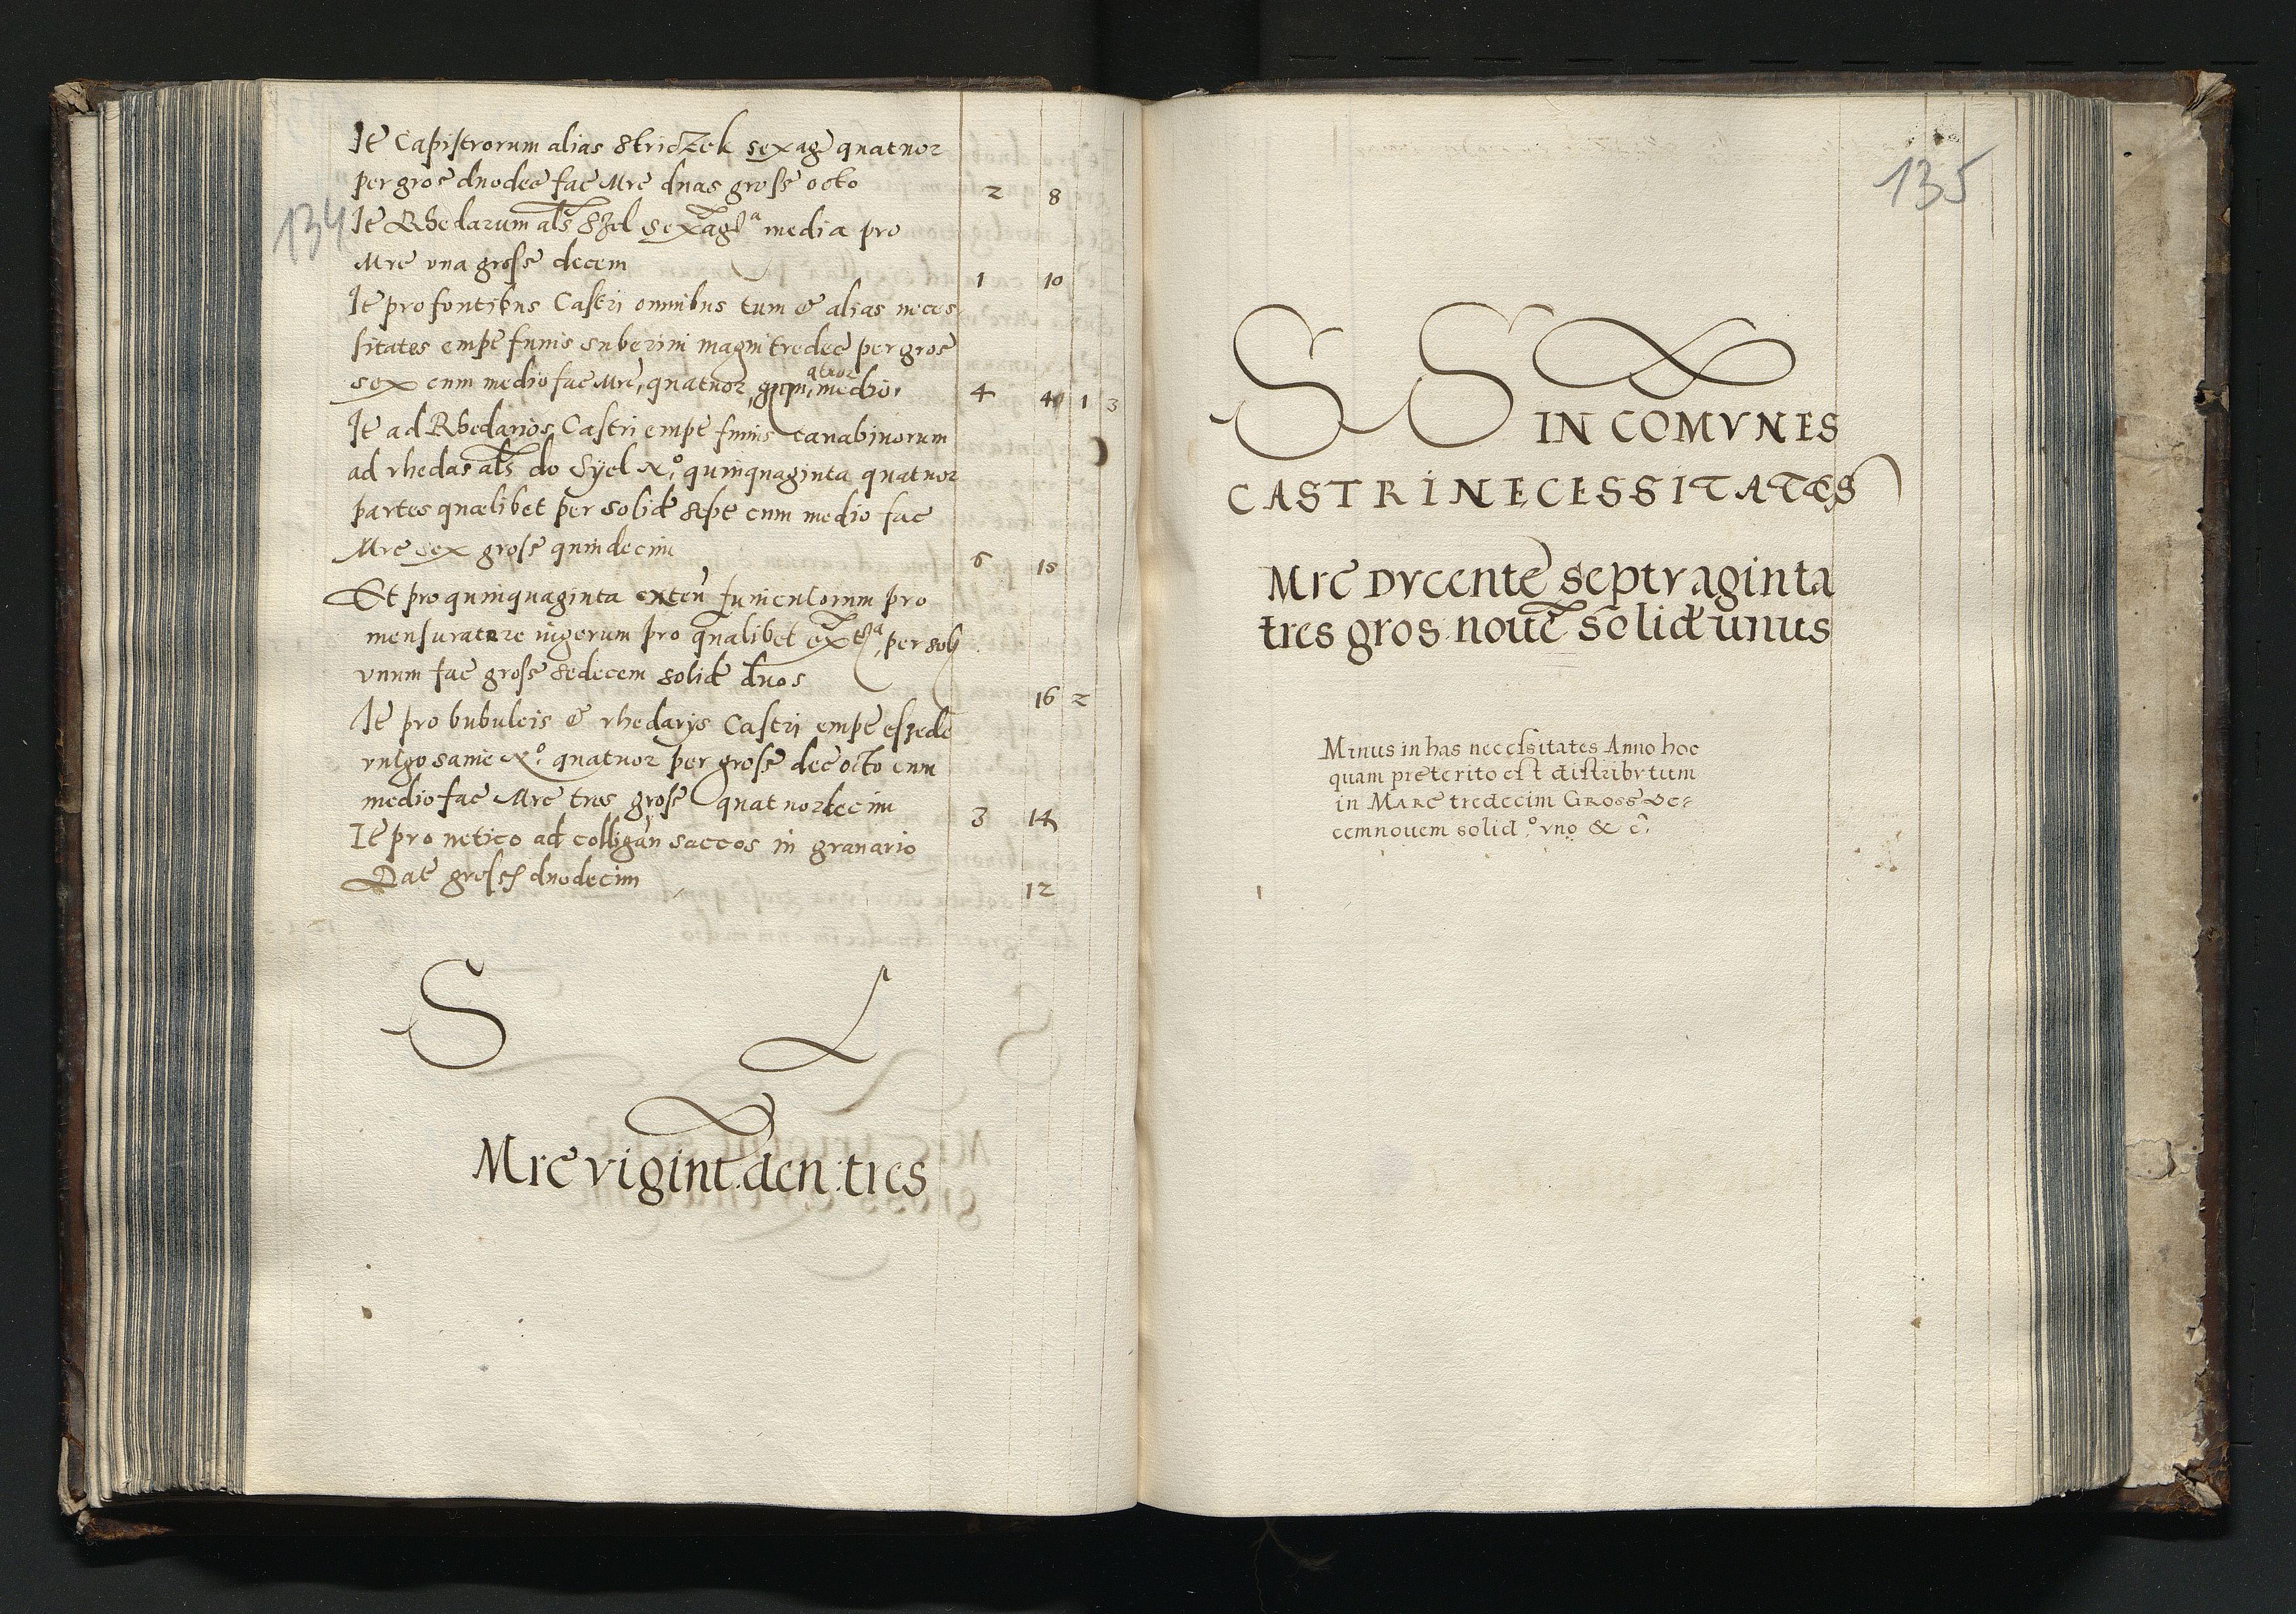 134
Ite Capistrorum alias Striczek sexag quatuor
per gros duodec fac Mrc duas gross octo 2 8
Ite Rhedarum als Szel sexag a media pro
Mrc una gross decem 1 10
Ite pro fontibus Castri omnibus tum & alias neces
sitates empt funis suberini magni tredec per gros
sex cum medio fac Mrc, quatuor qtuor medio, 4 4 1 3
Ite ad Rhedarios Castri empt funis canabinorum
ad rhedas als do Syel No quinquaginta quatuor
partes quælibet per solid sept cum medio fac
Mrc sex gross quindecim 6 15
Et pro quinquaginta exten funiculorum pro
mensuratore iugerum pro qualibet ext a, per soli
vnum fac gross sedecem solid duos 16 2
Ite pro bubulcis & rhedarijs Castri empt essede
vulgo sanie No quatuor per gross dec octo cum
medio fac Mrc tres gross quatuordecim 3 14
Ite pro netico ad colligan saccos in granario
Dat gross duodecim 12
S L
Mrc vigint den: tres
135
S S IN COMVNES
CASTRI NECESSITATES
Mrc Dvcente septvaginta
tres gros. noue solid unus
Minus in has necessitates Anno hoc
quam preterito est distribvtum
in Marc tredecim Gross de=
cemnouem solid o vno & c.